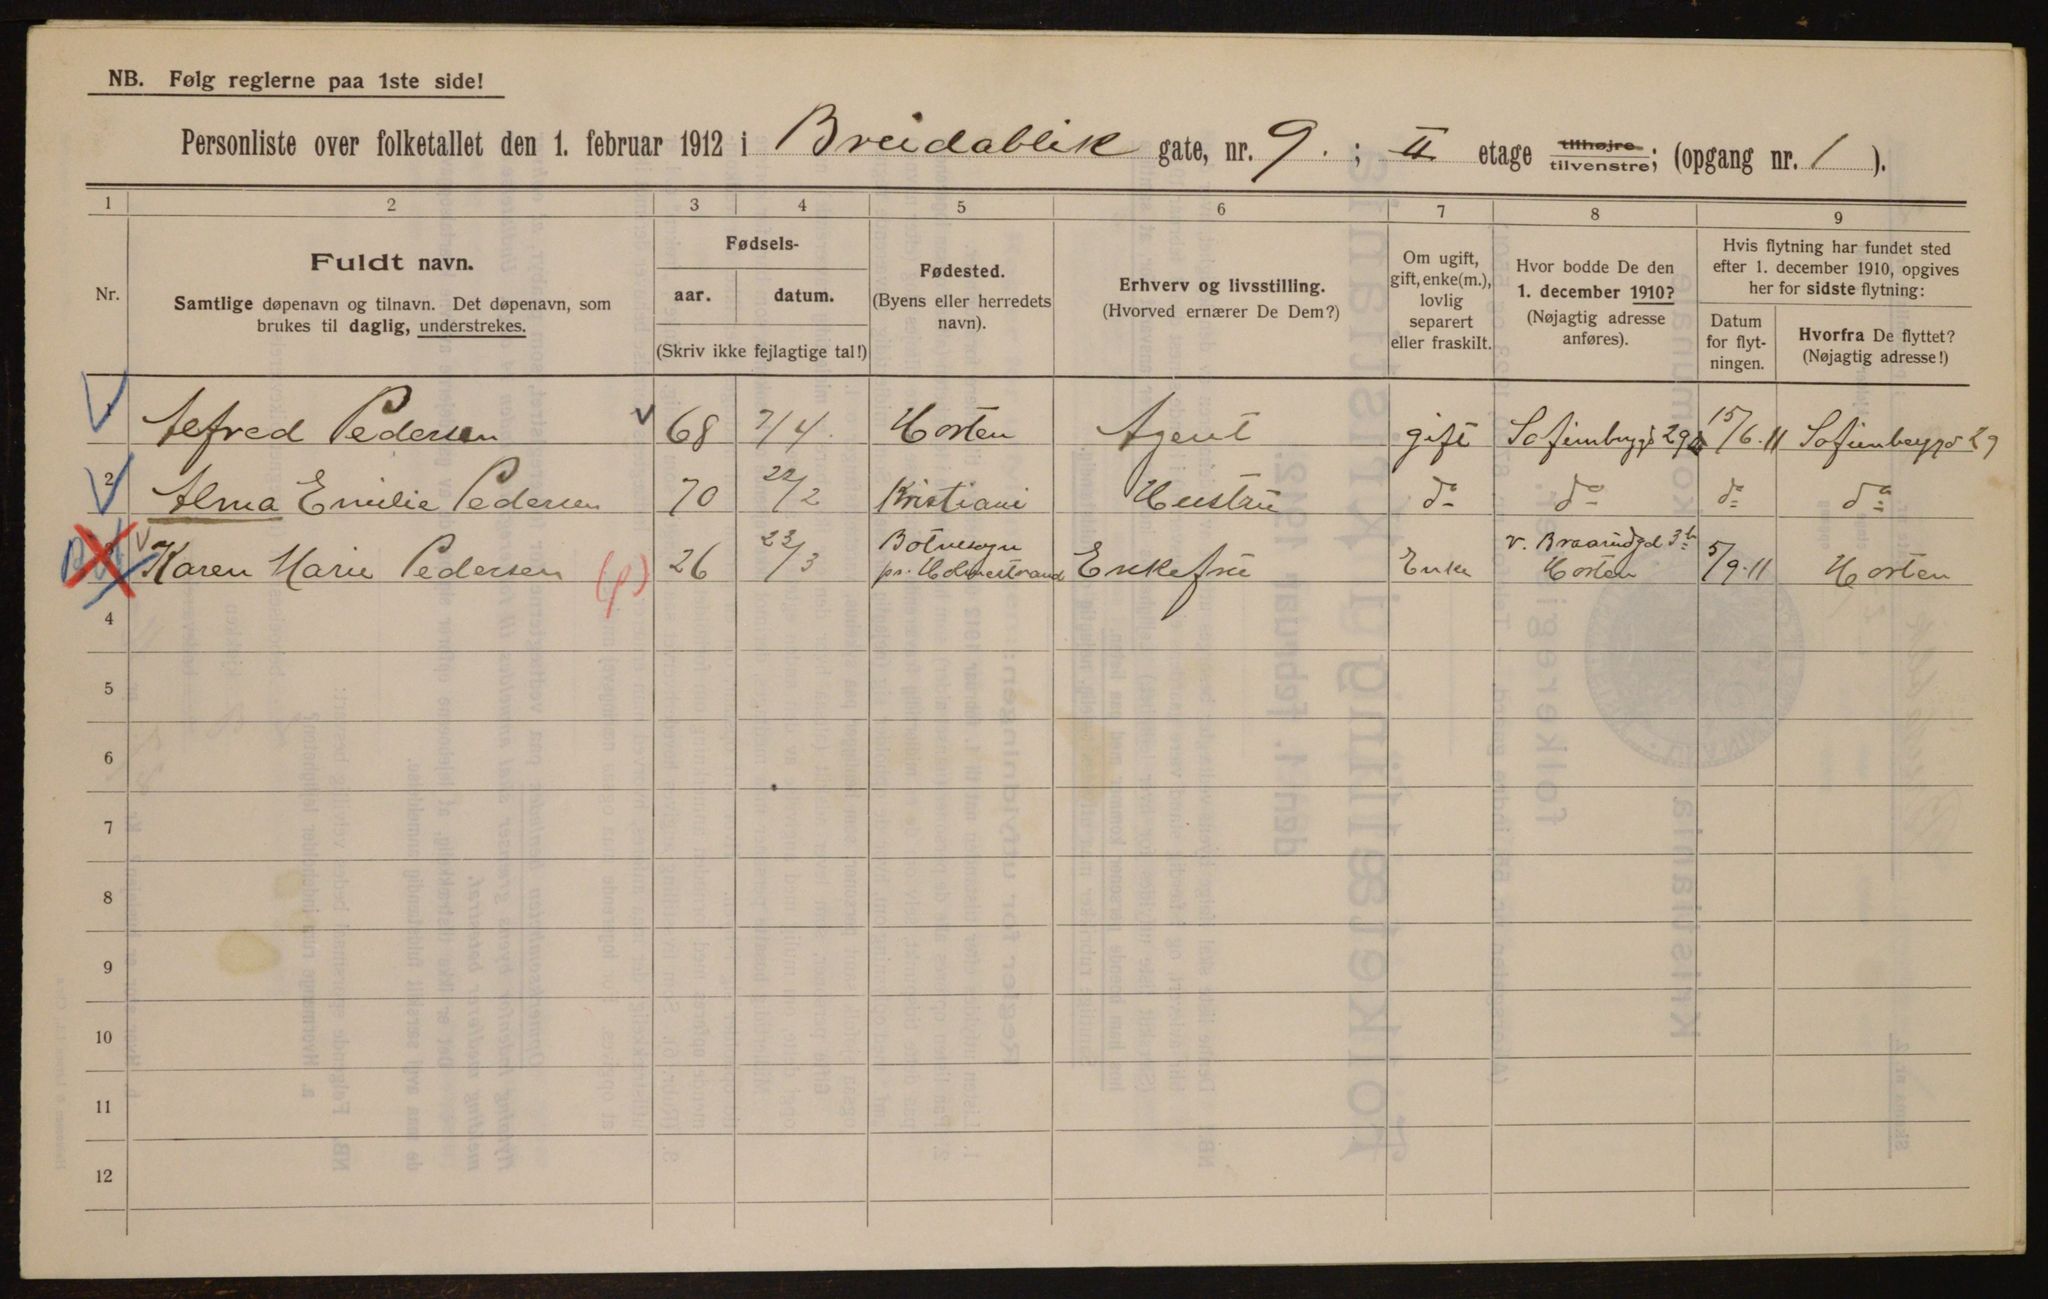 NB. Følg reglerne paa 1ste side!
Personliste over folketallet den 1. februar 1912 i Breidablik gate, nr. 9. ; II etage tilhøjre tilvenstre; (opgang nr. 1 ).
1 2 3 4 5 6 7 8 9
Nr.
Fuldt navn.
Samtlige døpenavn og tilnavn. Det døpenavn, som
brukes til daglig, understrekes.
Fødsels-
aar. datum.
(Skriv ikke fejlagtige tal!)
Fødested.
(Byens eller herredets
navn).
Erhverv og livsstilling.
(Hvorved ernærer De Dem?)
Om ugift,
gift, enke(m.),
lovlig
separert
eller fraskilt.
Hvor bodde De den
1. december 1910?
(Nøjagtig adresse
anføres).
Hvis flytning har fundet sted
efter 1. december 1910, opgives
her for sidste flytning:
Datum
for flyt-
ningen.
Hvorfra De flyttet?
(Nøjagtig adresse!)
Alfred Pedersen 68 7/4. Horten Agent gift 15/6.11
2 Alma Emilie Pedersen 70 22/2 Kristiani Hustru do do do do
Karen Marie Pedersen (f) 26 23/3 Botnesogn pr. Holmestrand Enkefrue Enke Horten 5/9.11 Horten
4
5
6
7
8
9
10
11
12